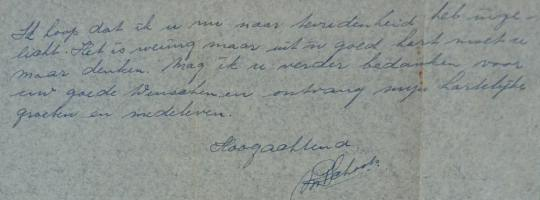 Ik hoop dat ik u nu naar tevredenheid heb inge-
licht. Het is weinig maar uit 'n goed hart moet u
maar denken. Mag ik u verder bedanken voor
uw goede wenschen en ontvang mijn hartelijke
groeten en medeleven.
Hoogachtend